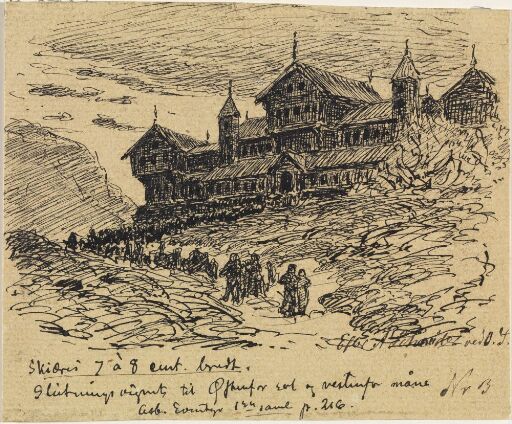 Efter A. Schneider ved O. S.
Skiæres 7 à 8 cent. bredt.
Slutnings vignet til Østenfor sol og vestenfor måne Nr 13
Asb. Eventyr 1ste saml p. 216.